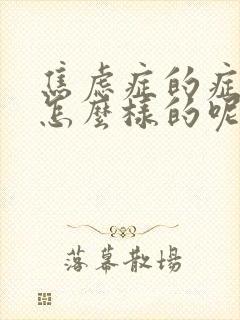 焦虑症的症
怎麼樣的呢
落幕散場